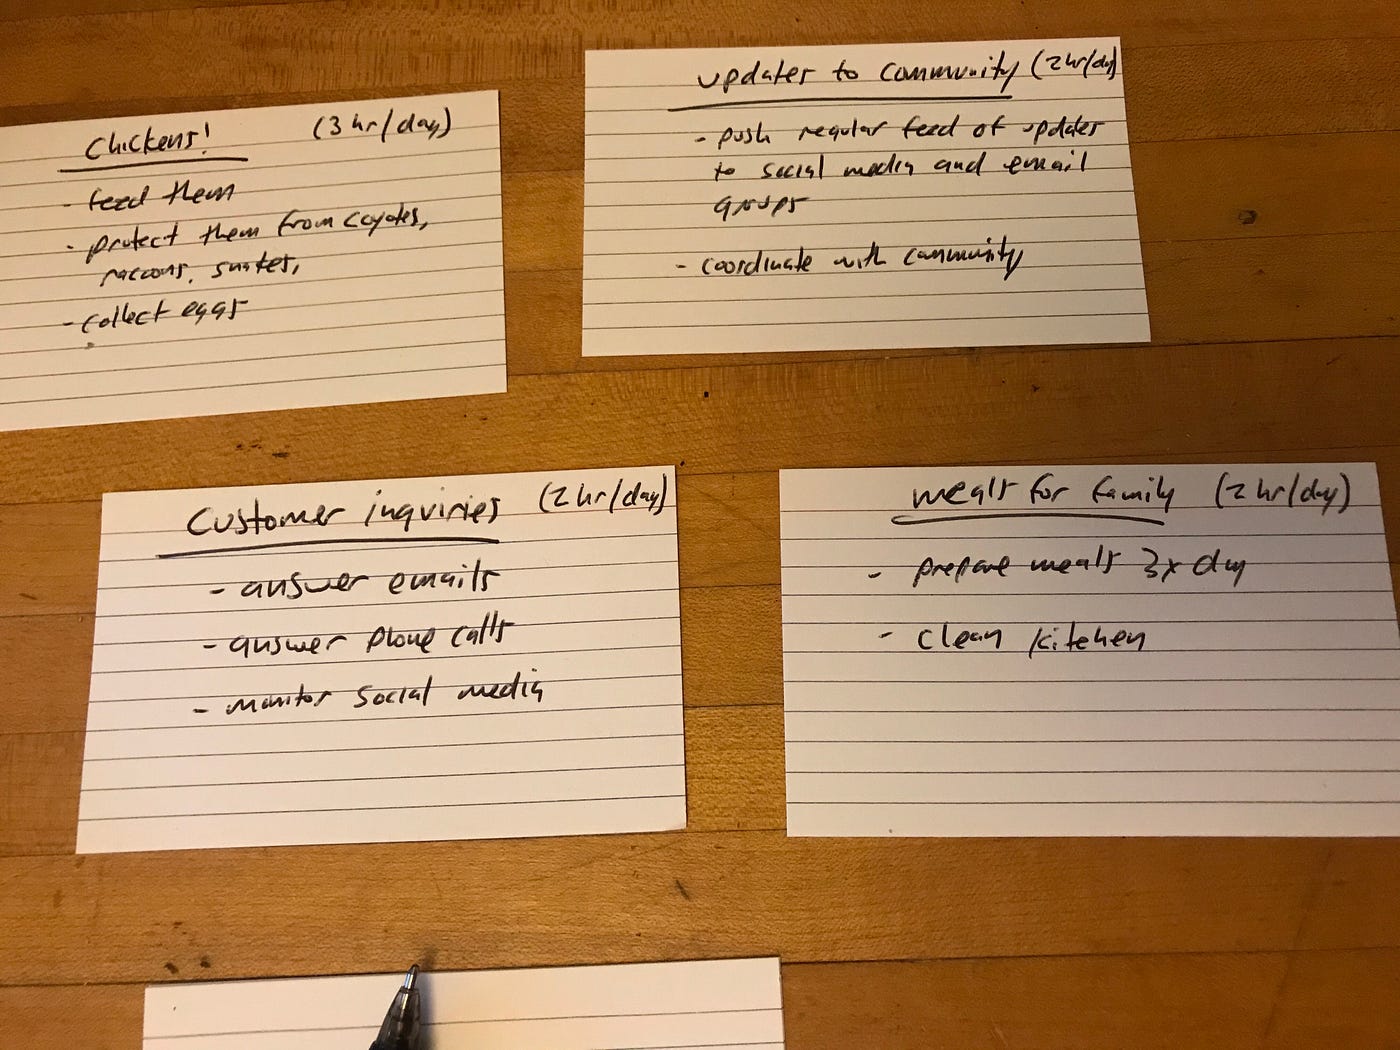 Chickens! (3 hr/day)
- feed them
- protect them from coyotes,
raccons, snakes,
- collect eggs
updates to community (2 hr/day)
- push regular feed of updates
to social media and email
groups
- coordinate with community
Customer inquiries (2 hr/day)
- answer emails
- answer phone calls
- monitor social media
meals for family (2 hr/day)
- prepare meals 3x day
- clean kitchen